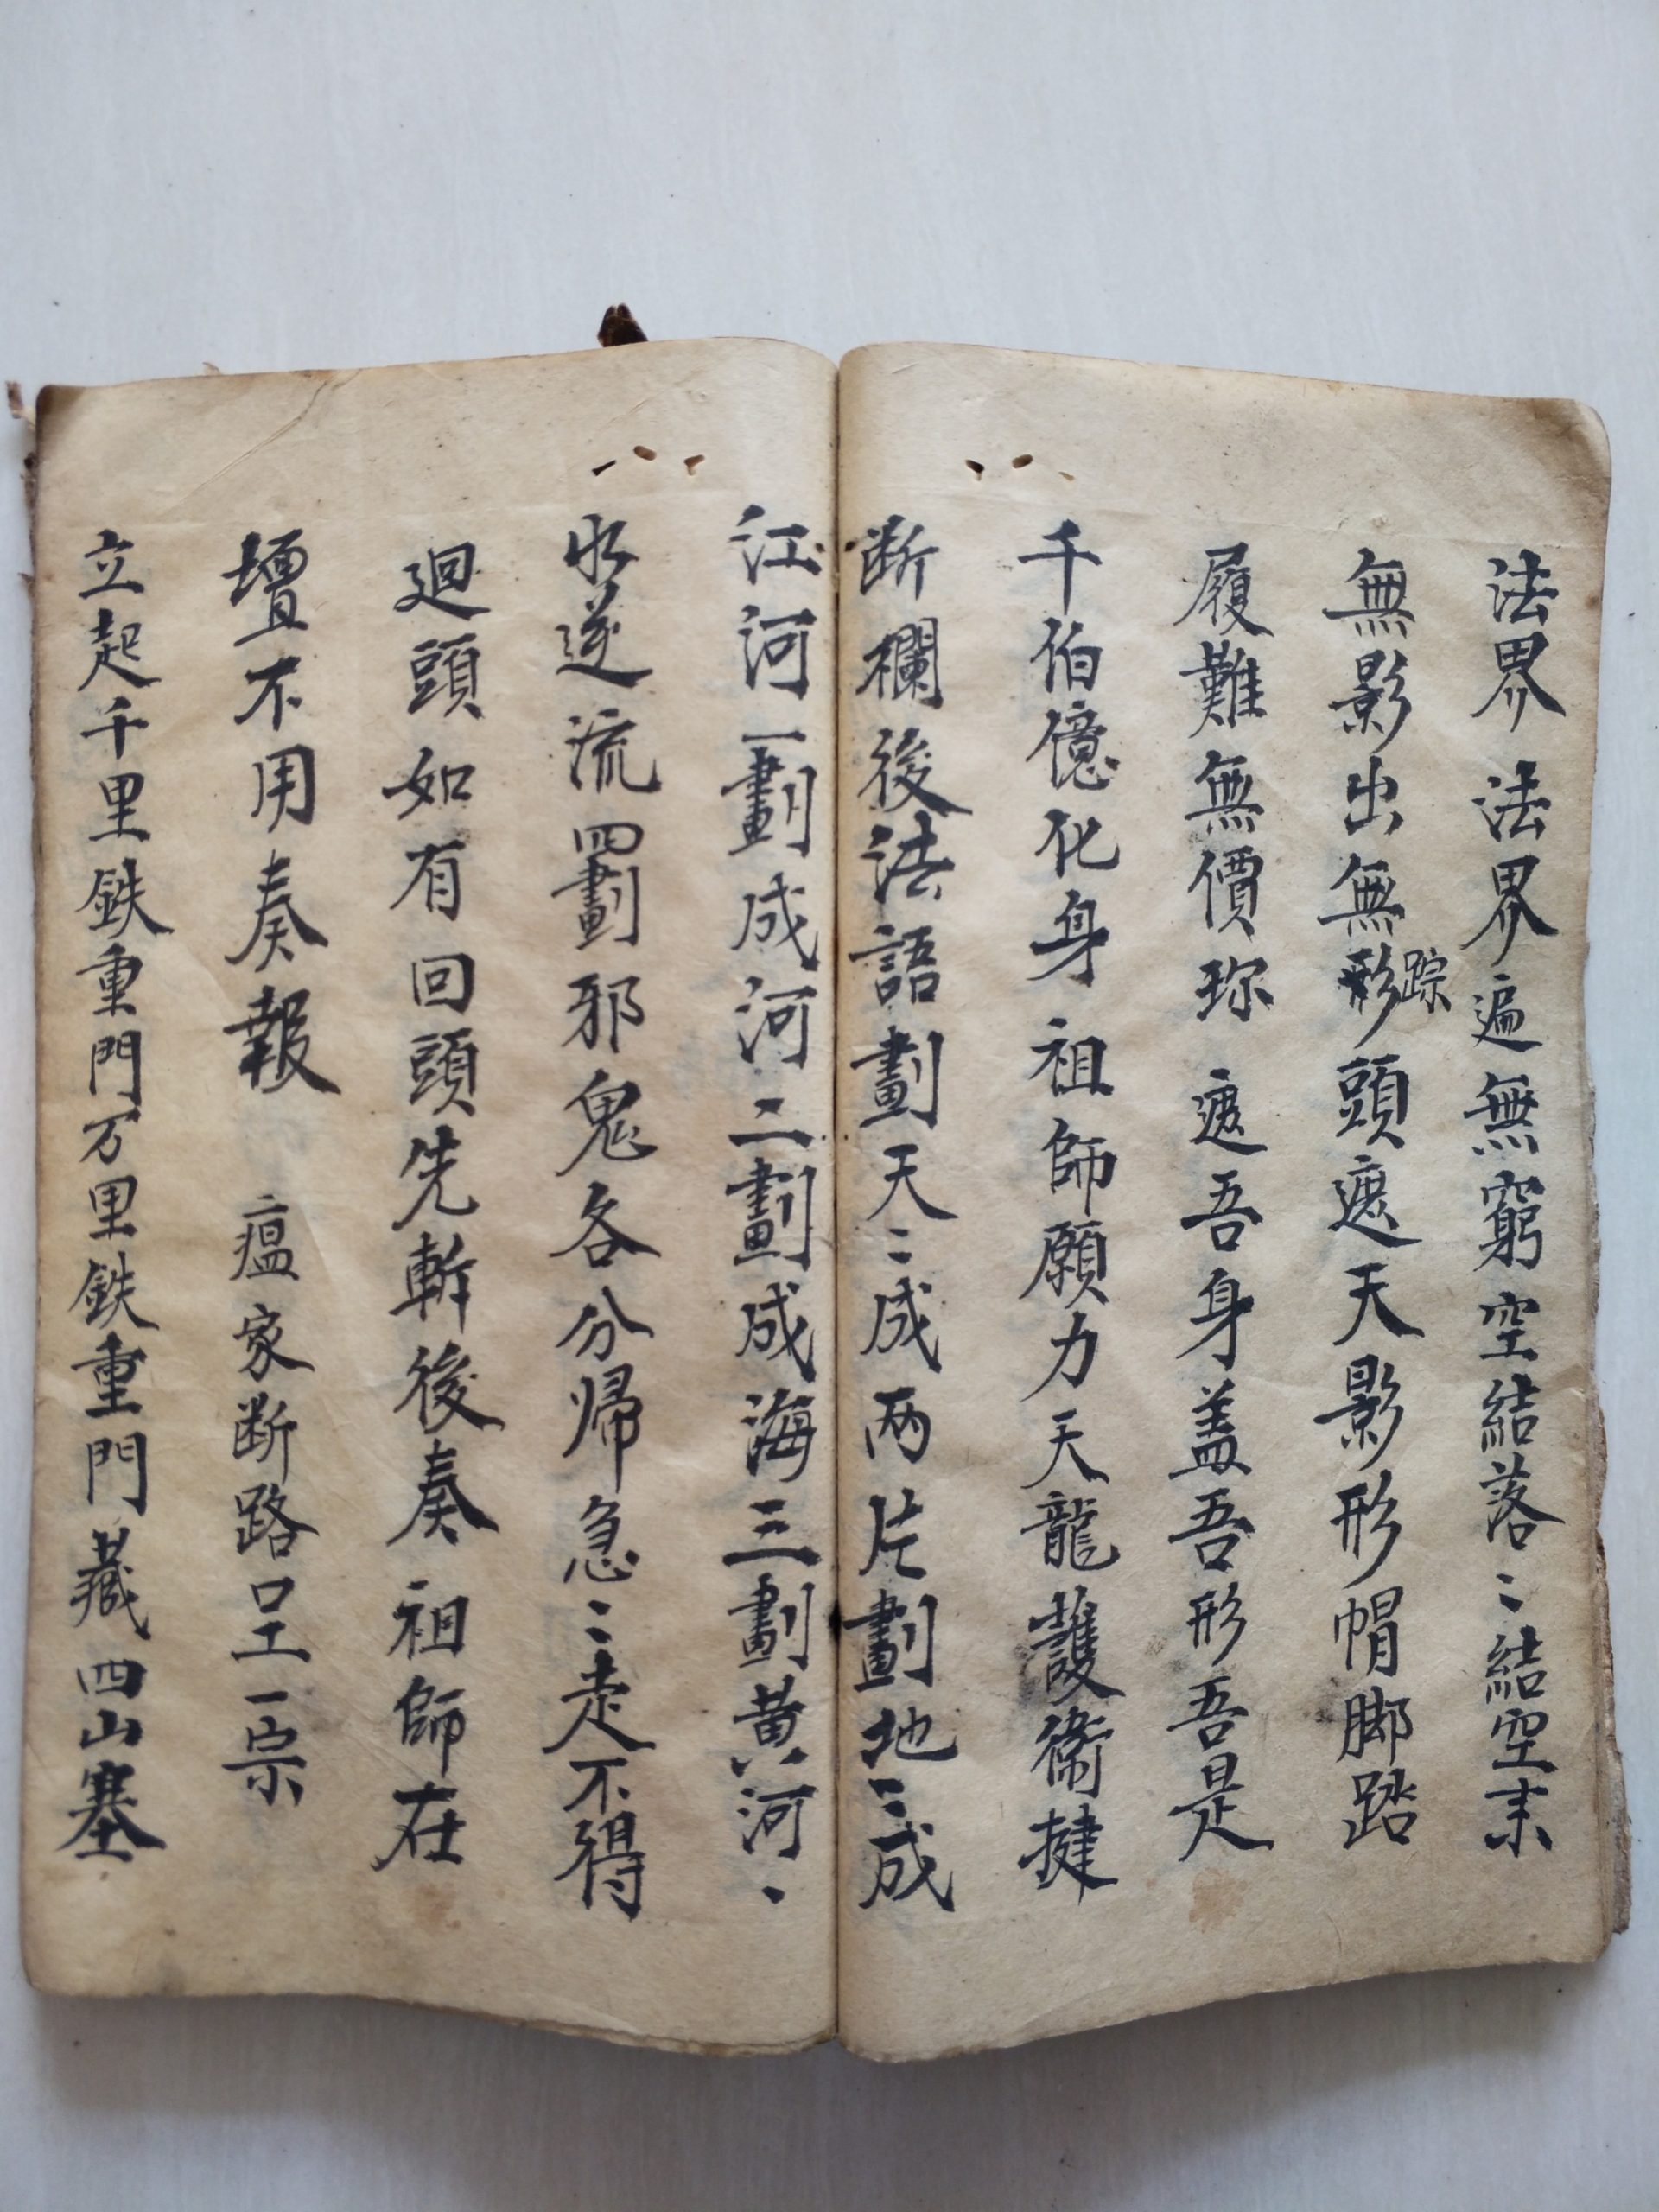 法界法界遍無窮空結落〻結空未
無影出無形踪頭遮天影形帽脚踏
履難無價珎遮吾身盖吾形吾是
千伯億化身祖師願力天龍護衛揵
断欄後法語劃天〻成两片劃地〻成
江河一劃成河二劃成海三劃黄河、
水逆流四劃邪鬼各分帰急〻走不得
迴頭如有回頭先斬後奏祖師在
壇不用奏報 瘟家断路呈一宗
立起千里鉄重門万里鉄重門藏四山塞